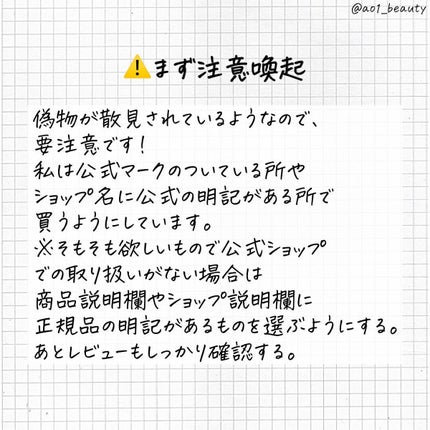 @ao1_beauty
⚠️まず注意喚起
偽物が散見されているようなので、
要注意です!
私は公式マークのついている所や
ショップ名に公式の明記がある所で
買うようにしています。
※そもそも欲しいもので公式ショップ
での取り扱いがない場合は
商品説明欄やショップ説明欄に
正規品の明記があるものを選ぶようにする。
あとレビューもしっかり確認する。